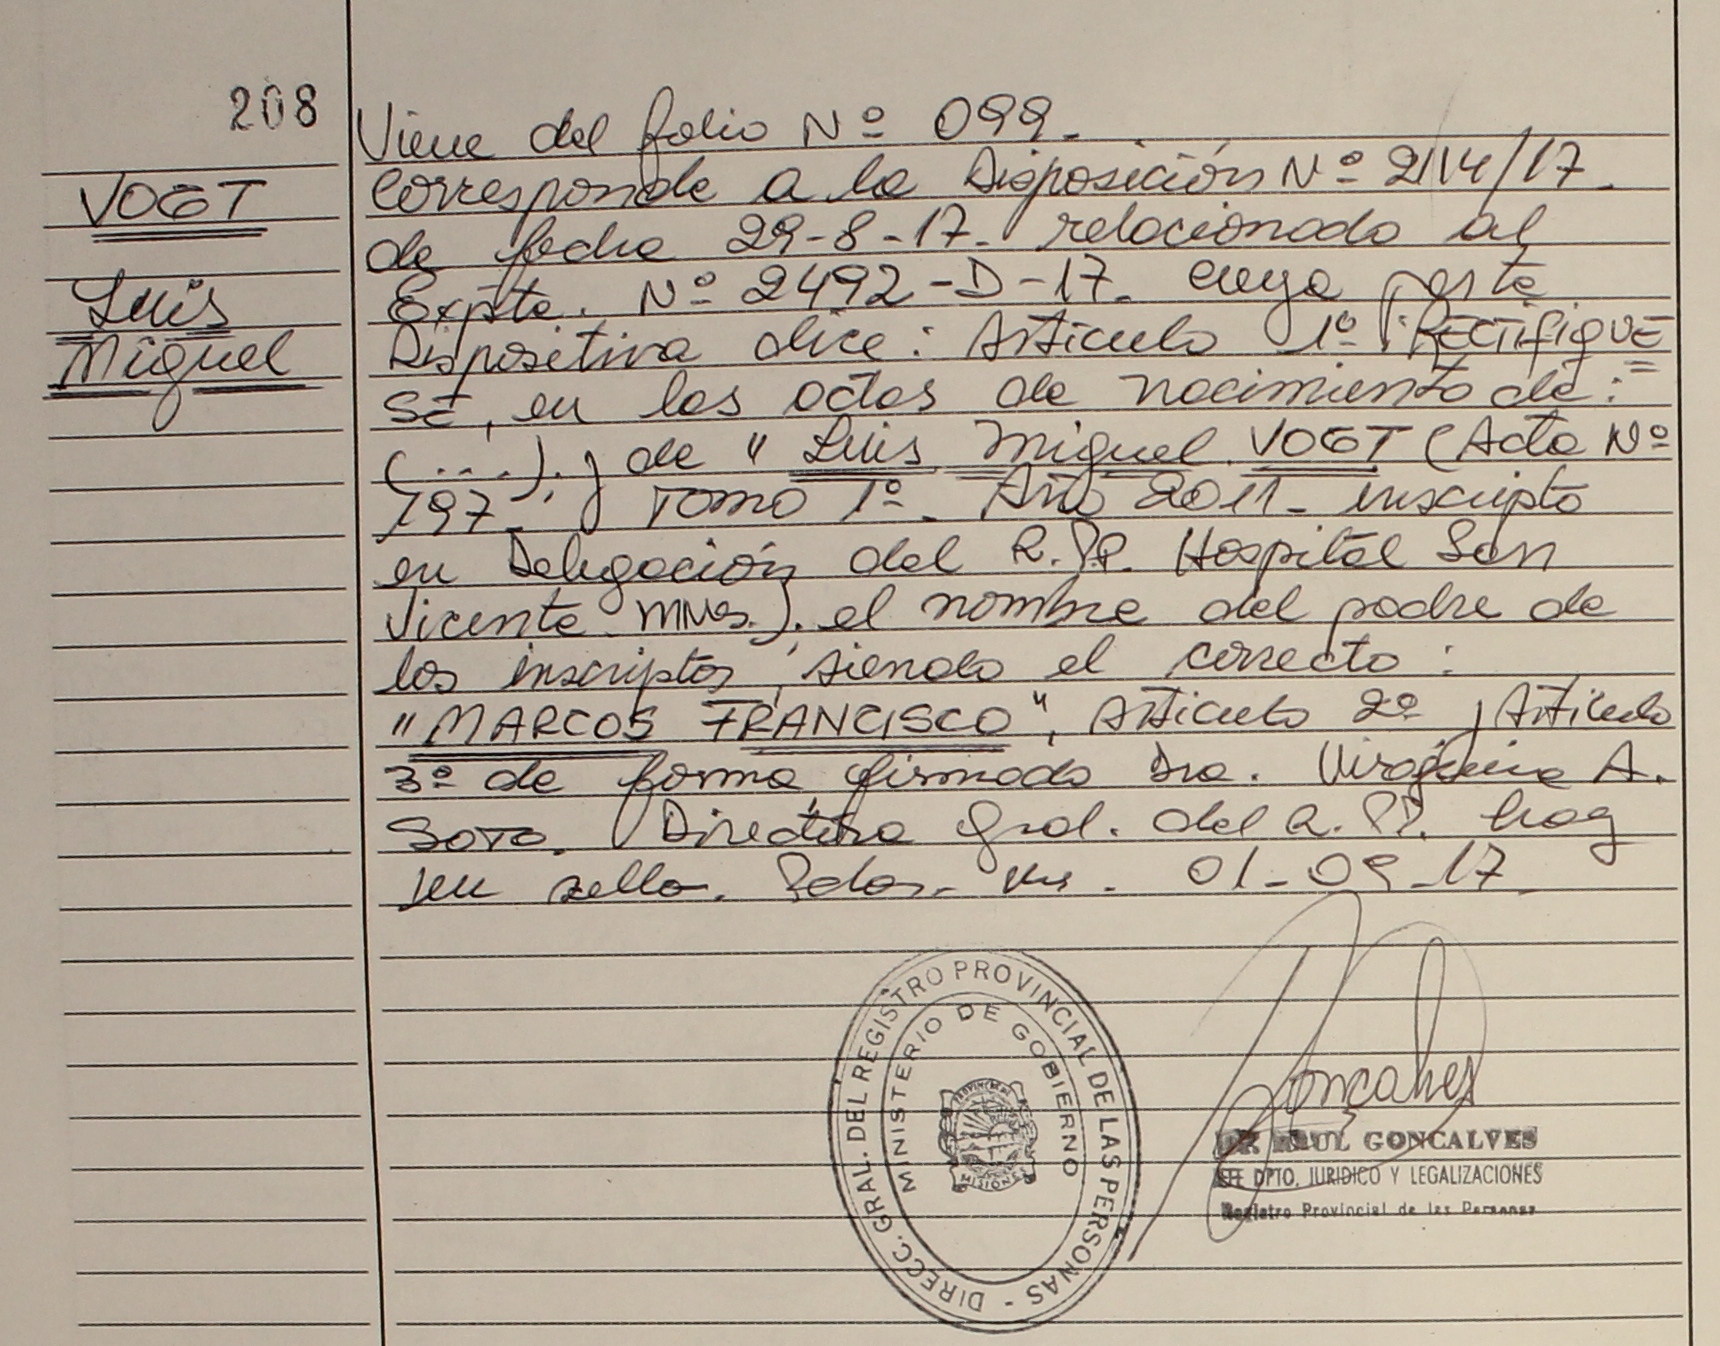 208
VOGT
Luis
Miguel
Viene del folio Nº 099.
Corresponde a la Disposición Nº 2114/17.
de fecha 29-8-17. relacionado al
Expte. Nº 2492-D-17. cuya parte
Dispositiva dice: Artículo 1º: RECTIFIQUE=
SE, en las actas de nacimiento de:
(....).; de "Luis Miguel VOGT (Acta Nº
797- Tomo 1º. Año 2011- inscripto
en Delegación del R.P.P. Hospital San
Vicente Mnes.). el nombre del padre de
los inscriptos, siendo el correcto:
"MARCOS FRANCISCO", Artículo 2º y Artículo
3º de forma firmado Dra. Virginia A.
Soto. Directora Gral. del R.P.P. hay
un sello. Pdas. Mnes. 01-09-17
DIRECC. GRAL. DEL REGISTRO PROVINCIAL DE LAS PERSONAS -
MINISTERIO DE GOBIERNO
MISIONES
Goncalves
DR. RAUL GONCALVES
JEFE DPTO. JURIDICO Y LEGALIZACIONES
Registro Provincial de las Personas